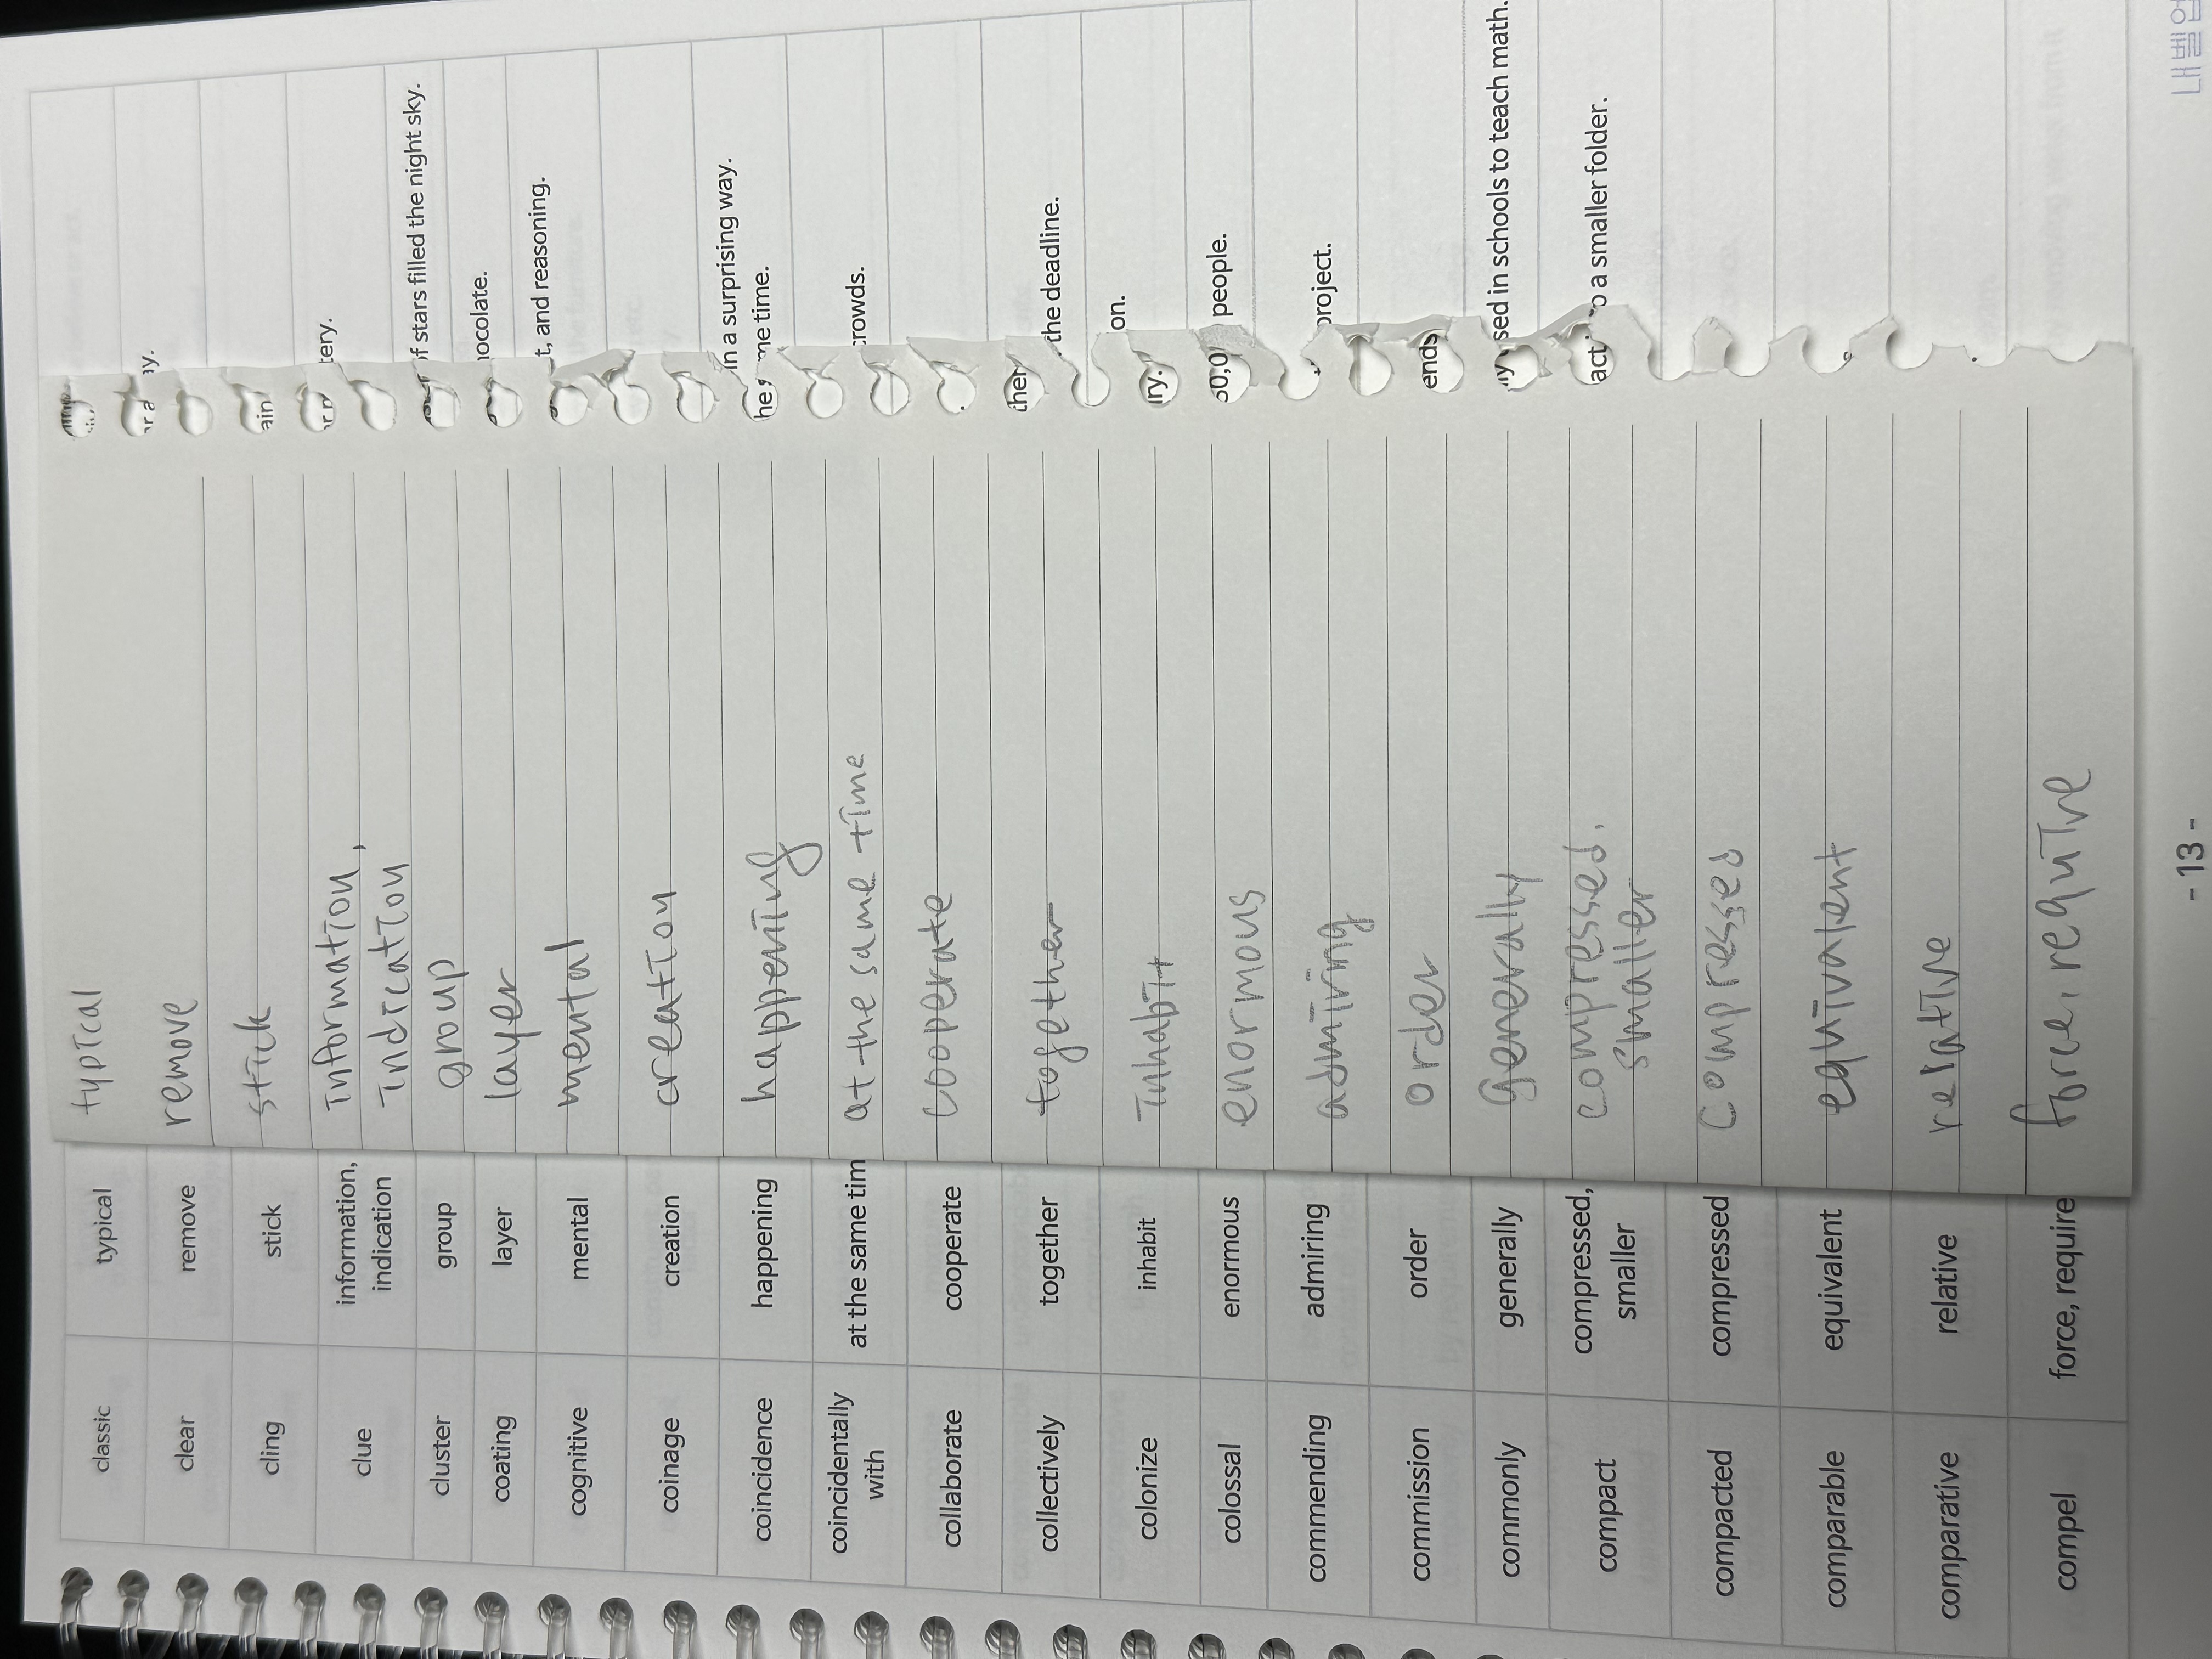 classic typical typical
clear remove remove
ay.
cling stick stick
ain
clue information, Information,
indication Indication
tery.
cluster group group
of stars filled the night sky.
coating layer layer
hocolate.
cognitive mental mental
t, and reasoning.
coinage creation creation
coincidence happening happening
in a surprising way.
me time.
coincidentally
with
at the same tim at the same time
crowds.
collaborate cooperate cooperate
collectively together together
the deadline.
colonize inhabit Inhabit
on.
ry.
colossal enormous enormous
people.
commending admiring admiring
project.
commission order order
commonly generally generally
sed in schools to teach math.
compact compressed, compressed,
smaller smaller
act
a smaller folder.
compacted compressed compressed
comparable equivalent equivalent
comparative relative relative
compel force, require force, require
- 13 -